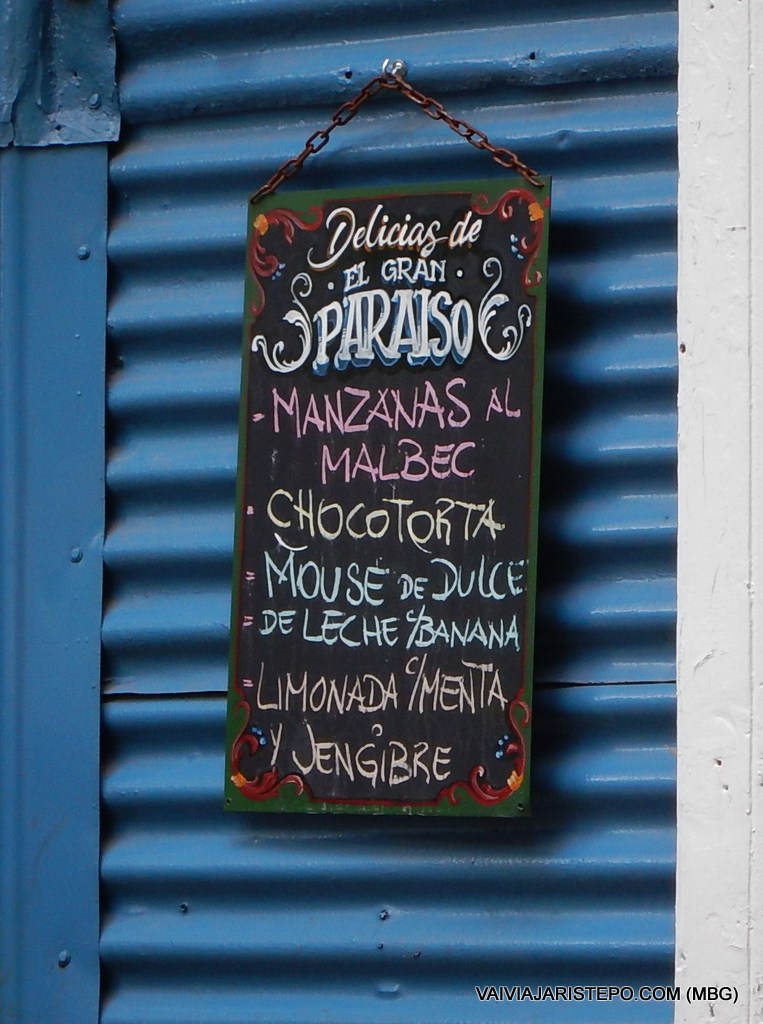 Delicias de
· EL GRAN ·
PARAISO
- MANZANAS AL
MALBEC
- CHOCOTORTA
= MOUSE DE DULCE
= DE LECHE c/BANANA
= LIMONADA c/MENTA
Y JENGIBRE
VAIVIAJARISTEPO.COM (MBG)